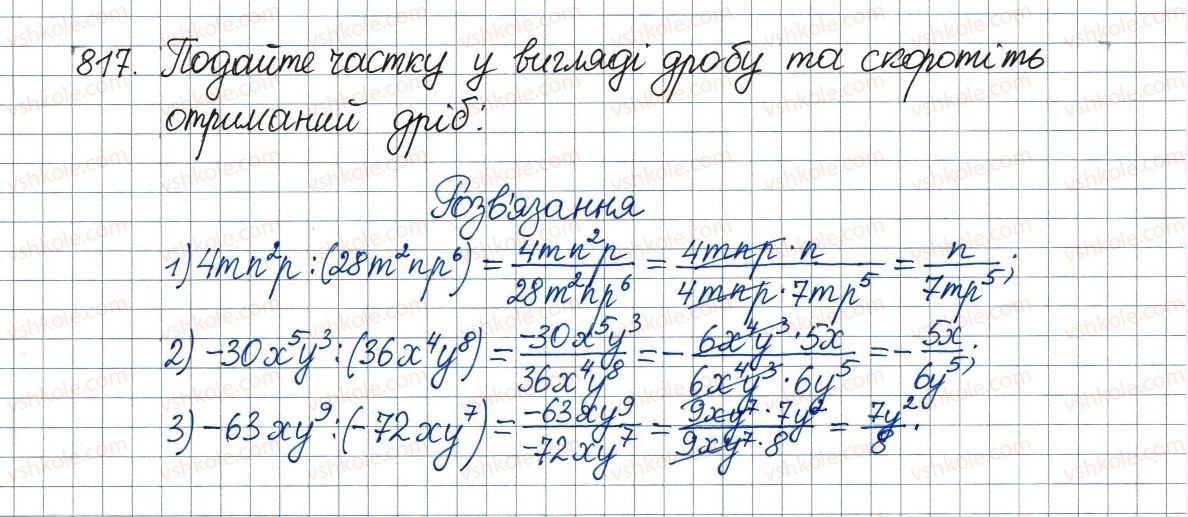 817. Подайте частку у вигляді дробу та скоротіть
отриманий дріб:
Розв'язання
1) 4mn²p : (28m²np⁶) = 4mn²p/28m²np⁶ = 4mnp·n/4mnp·7mp⁵ = n/7mp⁵;
2) -30x⁵y³ : (36x⁴y⁸) = -30x⁵y³/36x⁴y⁸ = - 6x⁴y³·5x/6x⁴y³·6y⁵ = - 5x/6y⁵;
3) -63xy⁹ : (-72xy⁷) = -63xy⁹/-72xy⁷ = 9xy⁷·7y²/9xy⁷·8 = 7y²/8.